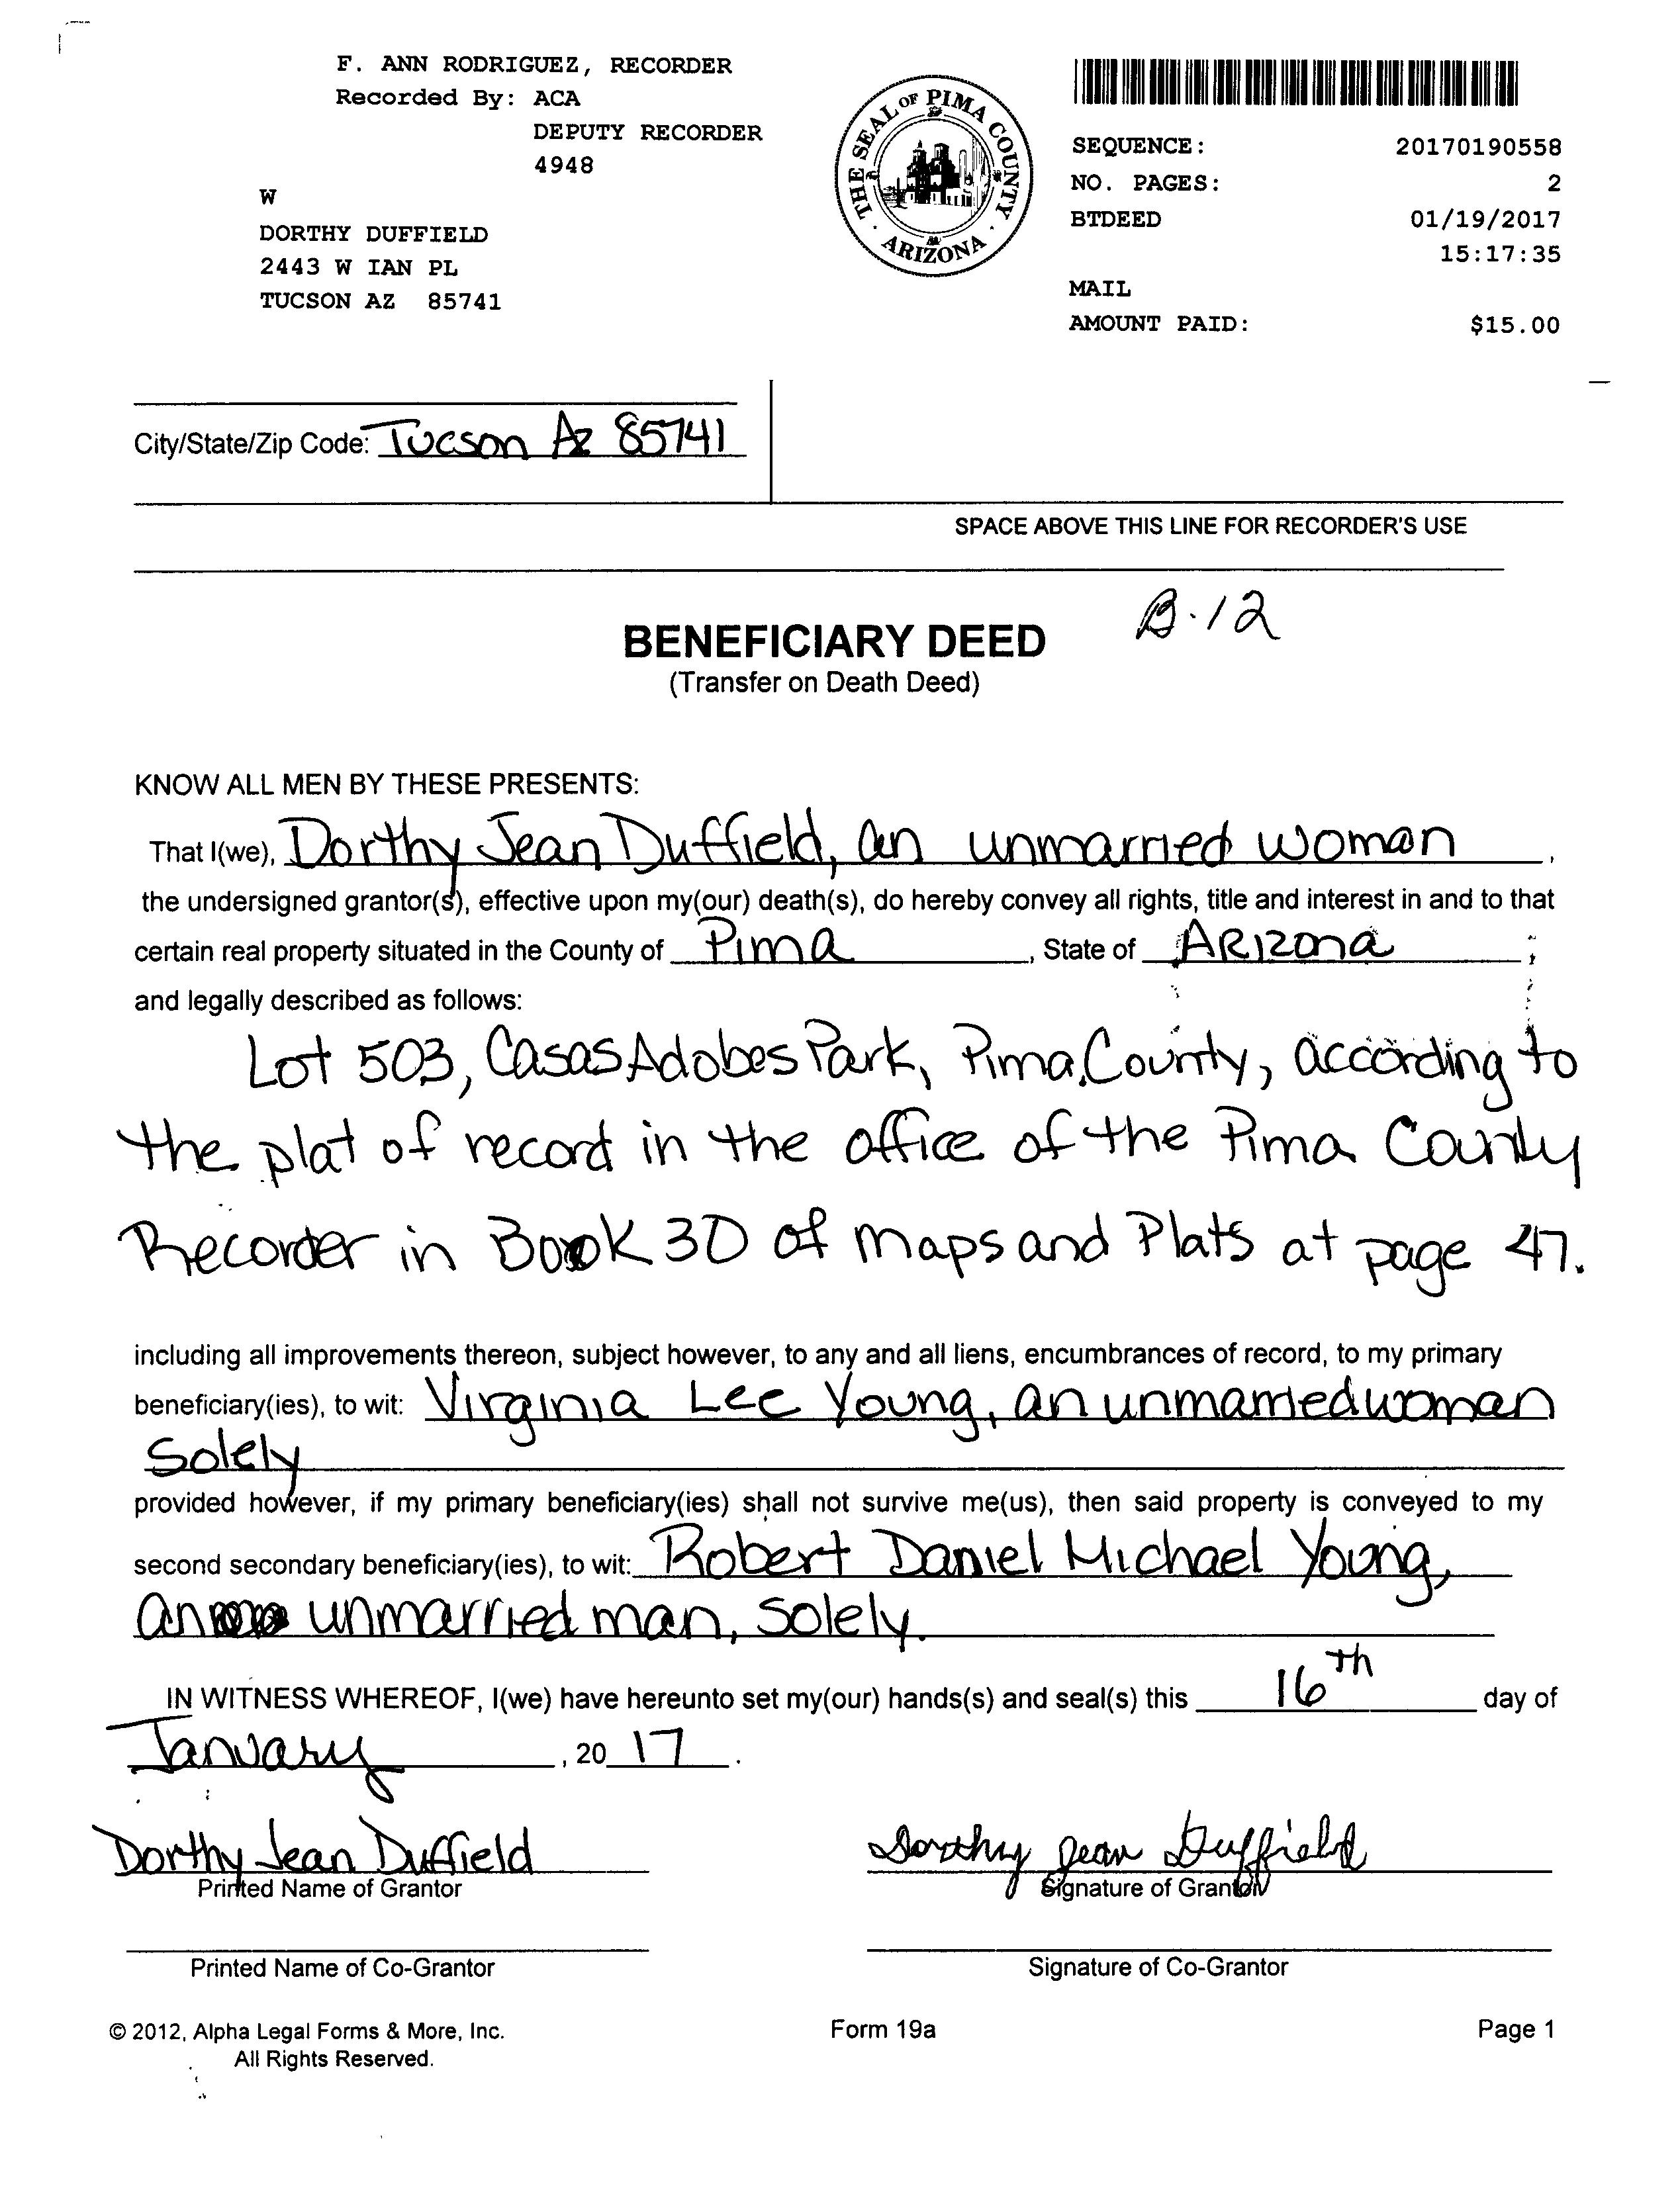 F. ANN RODRIGUEZ, RECORDER
Recorded By: ACA
DEPUTY RECORDER
4948
W
DORTHY DUFFIELD
2443 W IAN PL
TUCSON AZ 85741
THE SEAL OF PIMA COUNTY
ARIZONA
SEQUENCE: 20170190558
NO. PAGES: 2
BTDEED 01/19/2017
15:17:35
MAIL
AMOUNT PAID: $15.00
City/State/Zip Code: Tucson Az 85741
SPACE ABOVE THIS LINE FOR RECORDER'S USE
B-12
BENEFICIARY DEED
(Transfer on Death Deed)
KNOW ALL MEN BY THESE PRESENTS:
That I(we), Dorthy Jean Duffield, an unmarried woman,
the undersigned grantor(s), effective upon my(our) death(s), do hereby convey all rights, title and interest in and to that
certain real property situated in the County of Pima, State of ARizona;
and legally described as follows:
Lot 503, Casas Adobes Park, Pima County, according to
the plat of record in the office of the Pima County
Recorder in Book 30 of maps and Plats at page 47.
including all improvements thereon, subject however, to any and all liens, encumbrances of record, to my primary
beneficiary(ies), to wit: Virginia Lee Young, an unmarried woman
Solely
provided however, if my primary beneficiary(ies) shall not survive me(us), then said property is conveyed to my
second secondary beneficiary(ies), to wit: Robert Daniel Michael Young,
an unmarried man, solely.
IN WITNESS WHEREOF, I(we) have hereunto set my(our) hands(s) and seal(s) this 16th day of
January, 2017.
Dorthy Jean Duffield Dorthy Jean Duffield
Printed Name of Grantor Signature of Grantor
Printed Name of Co-Grantor Signature of Co-Grantor
© 2012, Alpha Legal Forms & More, Inc. Form 19a Page 1
All Rights Reserved.